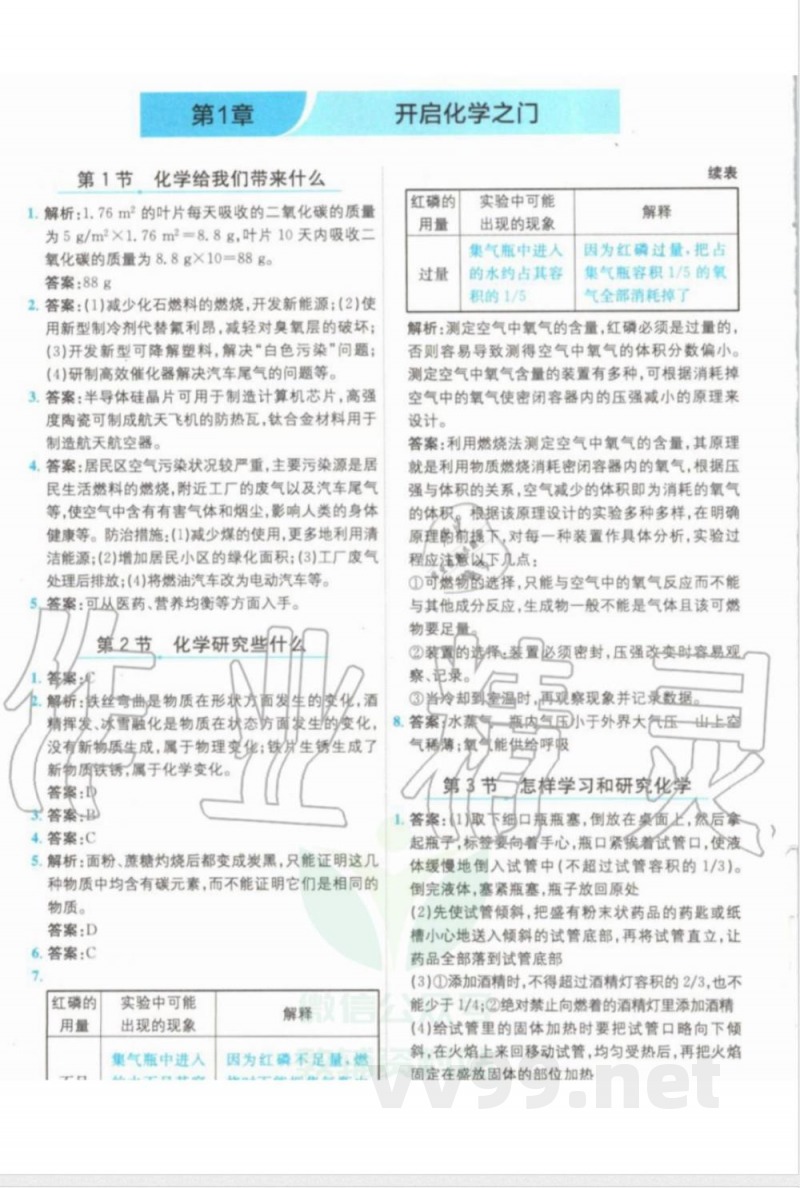 第1章 开启化学之门
第1节 化学给我们带来什么
1. 解析:1.76 m² 的叶片每天吸收的二氧化碳的质量
为 5 g/m²×1.76 m²=8.8 g,叶片 10 天内吸收二
氧化碳的质量为 8.8 g×10=88 g。
答案:88 g
2. 答案:(1)减少化石燃料的燃烧,开发新能源;(2)使
用新型制冷剂代替氟利昂,减轻对臭氧层的破坏;
(3)开发新型可降解塑料,解决“白色污染”问题;
(4)研制高效催化器解决汽车尾气的问题等。
3. 答案:半导体硅晶片可用于制造计算机芯片,高强
度陶瓷可制成航天飞机的防热瓦,钛合金材料用于
制造航天航空器。
4. 答案:居民区空气污染状况较严重,主要污染源是居
民生活燃料的燃烧,附近工厂的废气以及汽车尾气
等,使空气中含有有害气体和烟尘,影响人类的身体
健康等。防治措施:(1)减少煤的使用,更多地利用清
洁能源;(2)增加居民小区的绿化面积;(3)工厂废气
处理后排放;(4)将燃油汽车改为电动汽车等。
5. 答案:可从医药、营养均衡等方面入手。
第2节 化学研究些什么
1. 答案:C
2. 解析:铁丝弯曲是物质在形状方面发生的变化,酒
精挥发、冰雪融化是物质在状态方面发生的变化,
没有新物质生成,属于物理变化;铁片生锈生成了
新物质铁锈,属于化学变化。
答案:D
3. 答案:B
4. 答案:C
5. 解析:面粉、蔗糖灼烧后都变成炭黑,只能证明这几
种物质中均含有碳元素,而不能证明它们是相同的
物质。
答案:D
6. 答案:C
7.
红磷的用量 实验中可能出现的现象 解释
集气瓶中进入 因为红磷不足量,燃
续表
红磷的用量 实验中可能出现的现象 解释
过量 集气瓶中进入的水约占其容积的 1/5 因为红磷过量,把占集气瓶容积 1/5 的氧气全部消耗掉了
解析:测定空气中氧气的含量,红磷必须是过量的,
否则容易导致测得空气中氧气的体积分数偏小。
测定空气中氧气含量的装置有多种,可根据消耗掉
空气中的氧气使密闭容器内的压强减小的原理来
设计。
答案:利用燃烧法测定空气中氧气的含量,其原理
就是利用物质燃烧消耗密闭容器内的氧气,根据压
强与体积的关系,空气减少的体积即为消耗的氧气
的体积。根据该原理设计的实验多种多样,在明确
原理的前提下,对每一种装置作具体分析,实验过
程应注意以下几点:
①可燃物的选择,只能与空气中的氧气反应而不能
与其他成分反应,生成物一般不能是气体且该可燃
物要足量。
②装置的选择:装置必须密封,压强改变时容易观
察、记录。
③当冷却到室温时,再观察现象并记录数据。
8. 答案:水蒸气 瓶内气压小于外界大气压 山上空
气稀薄;氧气能供给呼吸
第3节 怎样学习和研究化学
1. 答案:(1)取下细口瓶瓶塞,倒放在桌面上,然后拿
起瓶子,标签要向着手心,瓶口紧挨着试管口,使液
体缓慢地倒入试管中(不超过试管容积的 1/3)。
倒完液体,塞紧瓶塞,瓶子放回原处
(2)先使试管倾斜,把盛有粉末状药品的药匙或纸
槽小心地送入倾斜的试管底部,再将试管直立,让
药品全部落到试管底部
(3)①添加酒精时,不得超过酒精灯容积的 2/3,也不
能少于 1/4;②绝对禁止向燃着的酒精灯里添加酒精
(4)给试管里的固体加热时要把试管口略向下倾
斜,在火焰上来回移动试管,均匀受热后,再把火焰
固定在盛放固体的部位加热
作业精灵